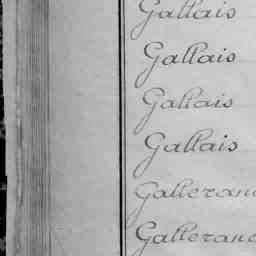 Gallais
Gallais
Gallais
Gallais
Gallerand
Gallerand